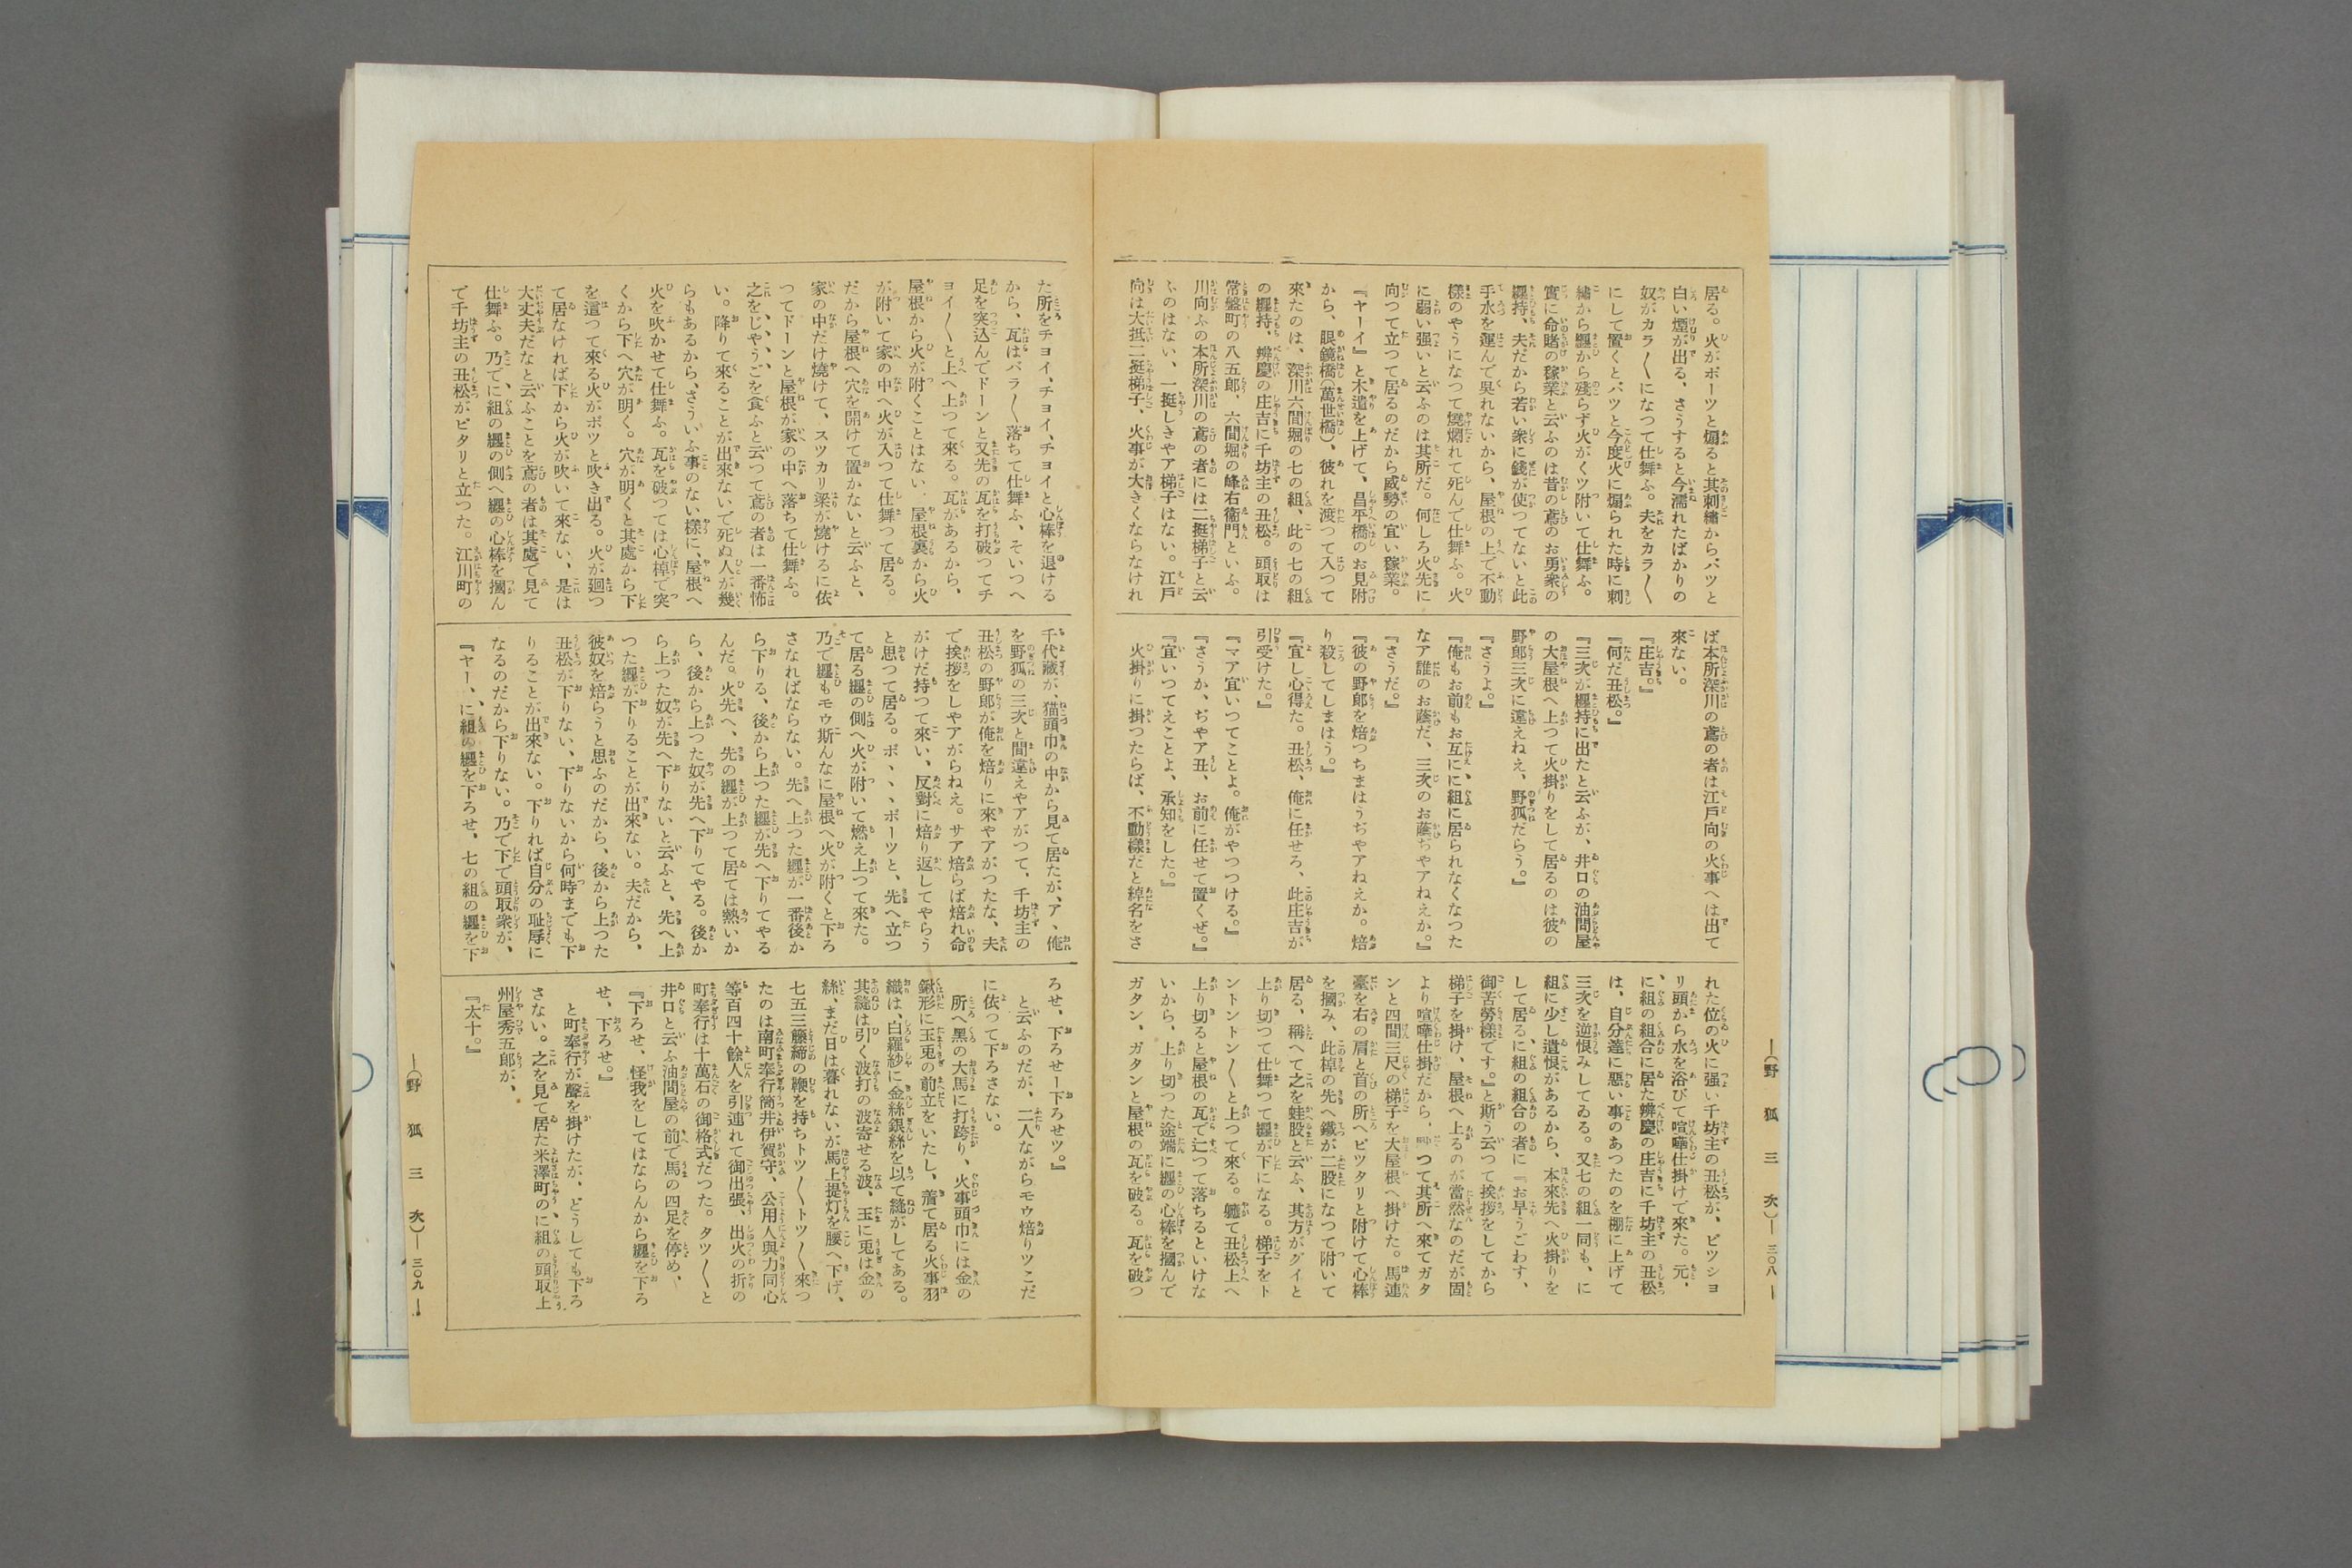 居る。火がボーツと煽ると其刺繡からパツと
白い煙が出る、さうすると今濡れたばかりの
奴がカラ〱になつて仕舞ふ。夫をカラ〱
にして置くとパツと今度火に煽られた時に刺
繡から纒から殘らず火がくツ附いて仕舞ふ。
實に命賭の稼業と云ふのは昔の鳶のお勇衆の
纒持、夫だから若い衆に錢が使つてないと此
手水を運んで吳れないから、屋根の上で不動
樣のやうになつて燒爛れて死んで仕舞ふ。火
に弱い强いと云ふのは其所だ。何しろ火先に
向つて立つて居るのだから威勢の宜い稼業。
『ヤーイ』と木遣を上げて、昌平橋のお見附
から、眼鏡橋(萬世橋)、彼れを渡つて入つて
來たのは、深川六間堀の七の組、此の七の組
の纒持、辨慶の庄吉に千坊主の丑松。頭取は
常盤町の八五郎、六間堀の峰右衞門といふ。
川向ふの本所深川の鳶の者には二挺梯子と云
ふのはない、一挺しきやア梯子はない。江戶
向は大抵二挺梯子、火事が大きくならなけれ
ば本所深川の鳶の者は江戶向の火事へは出て
來ない。
『庄吉。』
『何だ丑松。』
『三次が纒持に出たと云ふが、井口の油問屋
の大屋根へ上つて火掛りをして居るのは彼の
野郎三次に違えねえ、野狐だらう。』
『さうよ。』
『俺もお前もお互にに組に居られなくなつた
なア誰のお蔭だ、三次のお蔭ぢやアねえか。』
『さうだ。』
『彼の野郎を焙つちまはうぢやアねえか。焙
り殺してしまはう。』
『宜し心得た。丑松、俺に任せろ、此庄吉が
引受けた。』
『マア宜いつてことよ。俺がやつつける。』
『さうか、ぢやア丑、お前に任せて置くぜ。』
『宜いつてえことよ、承知をした。』
火掛りに掛つたらば、不動樣だと綽名をさ
れた位の火に强い千坊主の丑松が、ビツショ
リ頭から水を浴びて喧嘩仕掛けで來た。元、
に組の組合に居た辨慶の庄吉に千坊主の丑松
は、自分達に惡い事のあつたのを棚に上げて
三次を逆恨みしてゐる。又七の組一同も、に
組に少し遺恨があるから、本來先へ火掛りを
して居るに組の組合の者に『お早うごわす、
御苦勞樣です。』と斯う云つて挨拶をしてから
梯子を掛け、屋根へ上るのが當然なのだが固
より喧嘩仕掛だから、つて其所へ來てガタ
ンと四間三尺の梯子を大屋根へ掛けた。馬連
臺を右の肩と首の所へピツタリと附けて心棒
を摑み、此棹の先へ鐵が二股になつて附いて
居る、稱へて之を蛙股と云ふ、其方がグイと
上り切つて仕舞つて纒が下になる。梯子をト
ントントン〱と上つて來る。軈て丑松上へ
上り切ると屋根の瓦で辷つて落ちるといけな
いから、上り切つた途端に纒の心棒を摑んで
ガタン、ガタンと屋根の瓦を破る。瓦を破つ
―(野狐三次)― 三〇八 ―
た所をチヨイ、チヨイ、チヨイと心棒を退ける
から、瓦はバラ〱落ちて仕舞ふ、そいつへ
足を突込んでドーンと又先の瓦を打破つてチ
ヨイ〱と上へ上つて來る。瓦があるから、
屋根から火が附くことはない、屋根裏から火
が附いて家の中へ火が入つて仕舞つて居る。
だから屋根へ穴を開けて置かないと云ふと、
家の中だけ燒けて、スツカリ梁が燒けるに依
つてドーンと屋根が家の中へ落ちて仕舞ふ。
之をじやうごを食ふと云つて鳶の者は一番怖
い。降りて來ることが出來ないで死ぬ人が幾
らもあるから、さういふ事のない樣に、屋根へ
火を吹かせて仕舞ふ。瓦を破つては心棹で突
くから下へ穴が明く。穴が明くと其處から下
を這つて來る火がボツと吹き出る。火が廻つ
て居なければ下から火が吹いて來ない、是は
大丈夫だなと云ふことを鳶の者は其處で見て
仕舞ふ。乃でに組の纒の側へ纒の心棒を摑ん
で千坊主の丑松がピタリと立つた。江川町の
千代藏が、猫頭巾の中から見て居たが、ア、俺
を野狐の三次と間違えやアがつて、千坊主の
丑松の野郎が俺を焙りに來やアがつたな、夫
で挨拶をしやアがらねえ。サア焙らば焙れ命
がけだ持つて來い、反對に焙り返してやらう
と思つて居る。ボ、、、ボーツと、先へ立つ
て居る纒の側へ火が附いて燃え上つて來た。
乃で纒もモウ斯んなに屋根へ火が附くと下ろ
さなればならない。先へ上つた纒が一番後か
ら下りる、後から上つた纒が先へ下りてやる
んだ。火先へ、先の纒が上つて居ては熱いか
ら、後から上つた奴が先へ下りてやる。後か
ら上つた奴が先へ下りないと云ふと、先へ上
つた纒が下りることが出來ない。夫だから、
彼奴を焙らうと思ふのだから、後から上つた
丑松が下りない、下りないから何時までも下
りることが出來ない。下りれば自分の耻辱に
なるのだから下りない。乃で下で頭取衆が、
『ヤー、に組の纒を下ろせ、七の組の纒を下
ろせ、下ろせー下ろせツ。』
と云ふのだが、二人ながらモウ焙りツこだ
に依つて下ろさない。
所へ黑の大馬に打跨り、火事頭巾には金の
鍬形に玉兎の前立をいたし、着て居る火事羽
織は、白羅紗に金絲銀絲を以て縫がしてある。
其縫は引く波打の波寄せる波、玉に兎は金の
絲、まだ日は暮れないが馬上提灯を腰へ下げ、
七五三籐締の鞭を持ちトツ〱トツ〱來つ
たのは南町奉行筒井伊賀守、公用人與力同心
等百四十餘人を引連れて御出張、出火の折の
町奉行は十萬石の御格式だつた。タツ〱と
井口と云ふ油問屋の前で馬の四足を停め、
『下ろせ、怪我をしてはならんから纒を下ろ
せ、下ろせ。』
と町奉行が聲を掛けたが、どうしても下ろ
さない。之を見て居た米澤町のに組の頭取上
州屋秀五郎が、
『太十。』
―(野狐三次)― 三〇九 ―